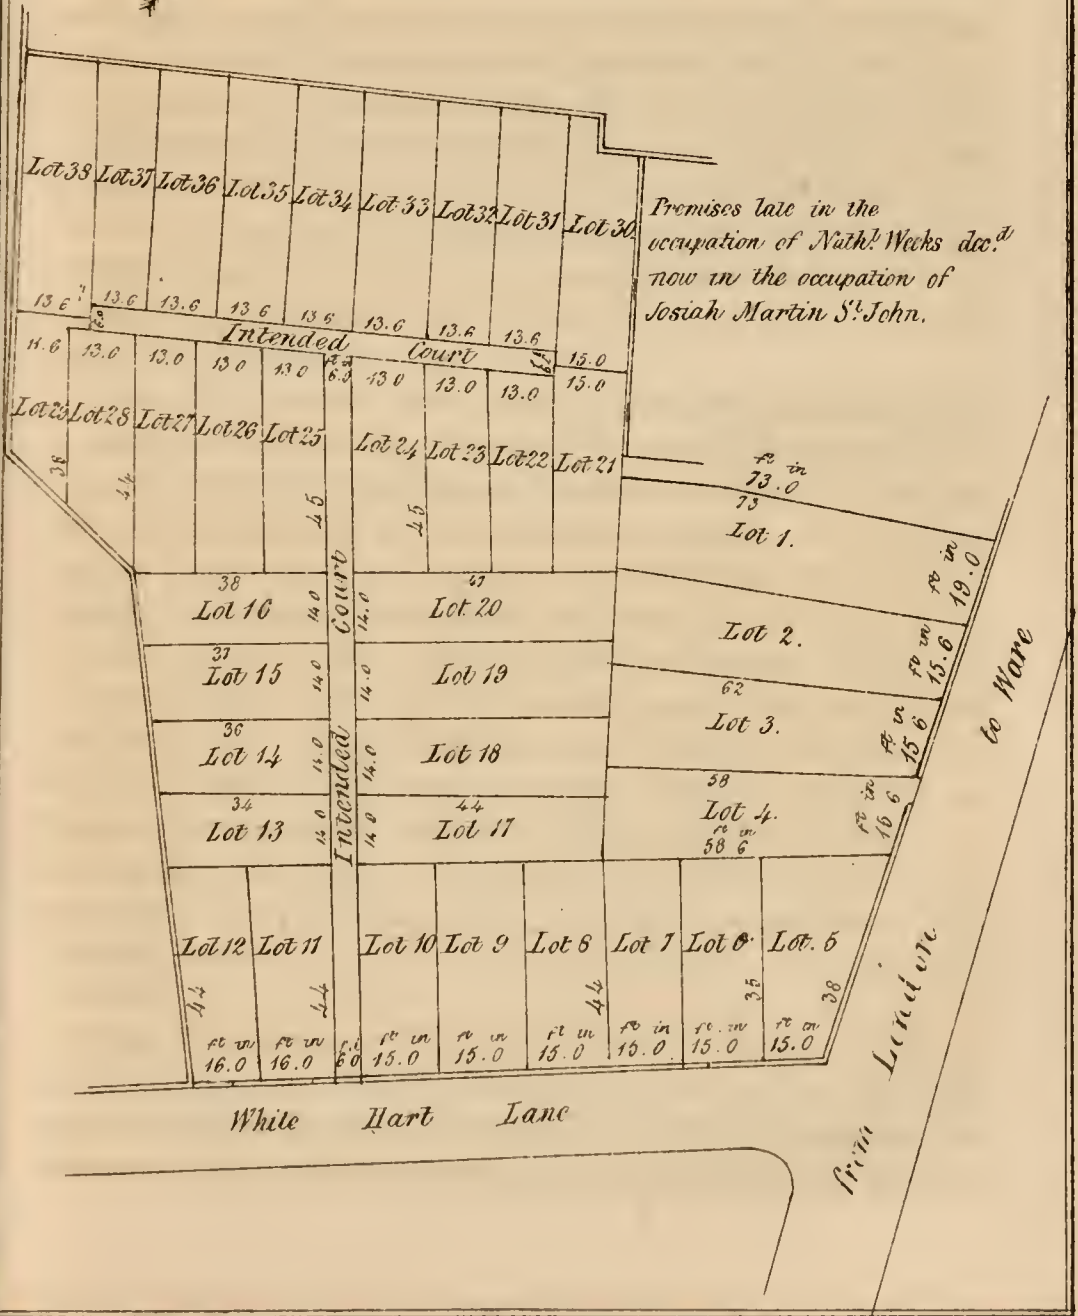 Lot 38 Lot 37 Lot 36 Lot 35 Lot 34 Lot 33 Lot 32 Lot 31 Lot 30
Premises late in the
occupation of Nathl. Weeks decd.
now in the occupation of
Josiah Martin St. John.
13.6 13.6 13.6 13 6 13 6 13.6 13.6 13.6 15.0
6.0 Intended Court
11.6 13.0 13.0 13 0 13 0 6.0 13 0 13.0 13.0 15.0
Lot 29 Lot 28 Lot 27 Lot 26 Lot 25 Lot 24 Lot 23 Lot 22 Lot 21
36 44 45 45
ft in
73.0
73
Lot 1.
ft in
19.0
38
Lot 16 14.0
47
14.0 Lot 20
Lot 2.
ft in
15.6
37
Lot 15 14.0
14.0 Lot 19
62
Lot 3.
ft in
15 6
36
Lot 14 14.0
14.0 Lot 18
58
Lot 4.
ft in
58 6
ft in
15 6
34
Lot 13 14.0
44
14.0 Lot 17
Intended Court
Lot 12 Lot 11 Lot 10 Lot 9 Lot 8 Lot 7 Lot 6 Lot. 5
44 44 44 35 38
ft in ft in ft in ft in ft in ft in ft in ft in
16.0 16.0 6 0 15.0 15.0 15.0 15.0 15.0 15.0
White Hart Lane
from London to Ware